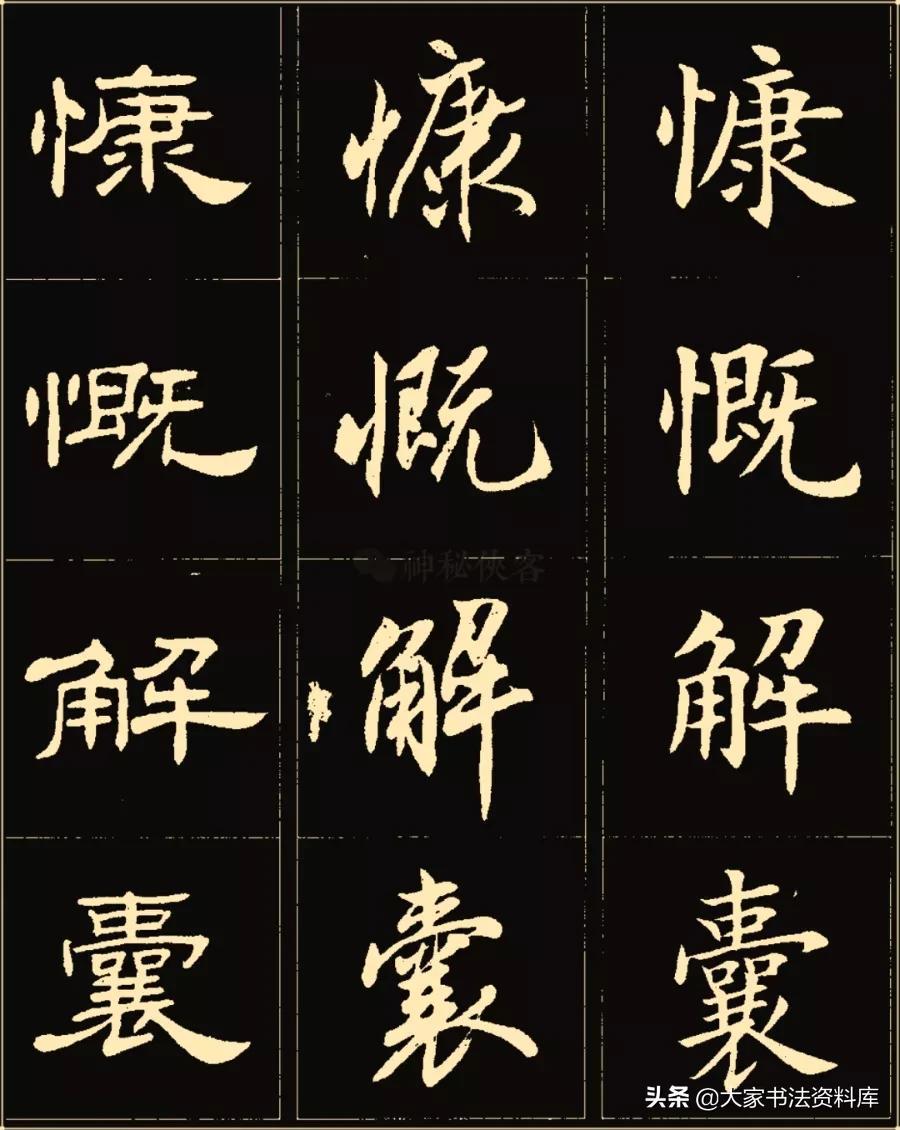 慷慷慷
慨慨慨
解解解
囊囊囊
神秘侠客
头条 @大家书法资料库